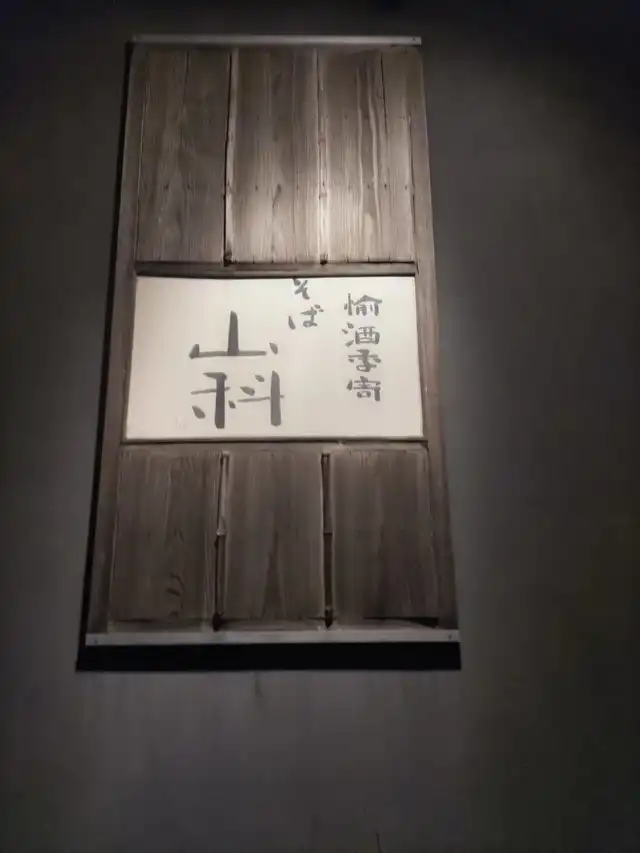 愉酒季寄
そば
山科